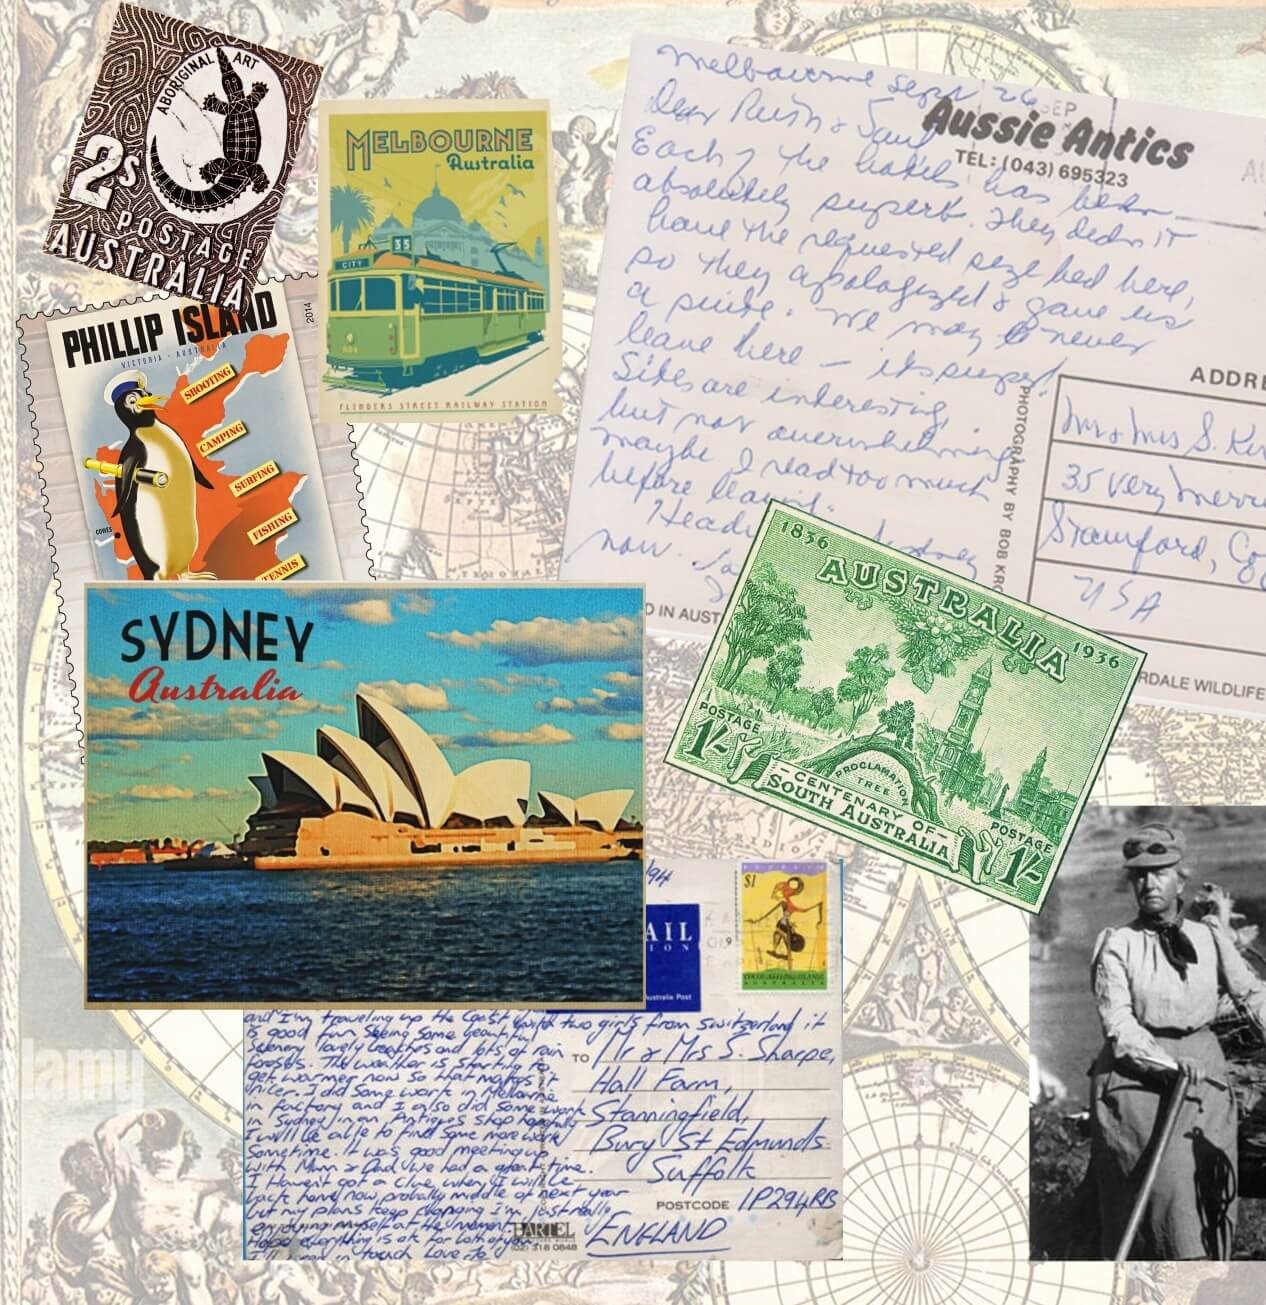 ABORIGINAL ART
2s
POSTAGE
AUSTRALIA
MELBOURNE
Australia
35
CITY
FLINDERS STREET RAILWAY STATION
2014
PHILLIP ISLAND
VICTORIA - AUSTRALIA
SHOOTING
CAMPING
SURFING
FISHING
TENNIS
COWES
Melbourne Sept 26
SEP
Aussie Antics
TEL: (043) 695323
Dear Ruth &
Each of the hotels has been
absolutely superb. They didn't
have the requested size bed here,
so they apologized & gave us
a suite. We may never
leave here - its super!
Sites are interesting,
but not overwhelming
maybe I read too much
before leaving.
now.
PHOTOGRAPHY BY BOB
ADDRE
Mr & Mrs S.
35 Very Merry
Stamford, Co
USA
D IN AUST
RDALE WILDLIFE
1836
AUSTRALIA
1936
POSTAGE
1/-
PROCLAMATION
TREE
- CENTENARY OF -
SOUTH AUSTRALIA
POSTAGE
1/-
SYDNEY
Australia
/94
AIL
ION
Australia Post
$1
COCOS (KEELING) ISLANDS
AUSTRALIA
and I'm traveling up the Coast with two girls from Switzerland it
is good fun seeing some beautiful
scenery lovely beaches and lots of rain
forests. The weather is starting to
get warmer now so that makes it
nicer. I did some work in Melbourne
in factory and I also did some work
in Sydney in an Antiques shop hopefully
I will be able to find some more work
sometime. It was good meeting up
with Mum & Dad we had a great time.
I haven't got a clue when I will be
back home now, probally middle of next year
but my plans keep changing I'm just really
enjoying myself at the moment
Hope everything is ok for both of you
in touch Love to
TO Mr & Mrs S. Sharpe,
Hall Farm,
Stanningfield,
Bury St Edmunds
Suffolk
POSTCODE IP294RB
ENGLAND
BARTEL
(02) 318 0848
alamy